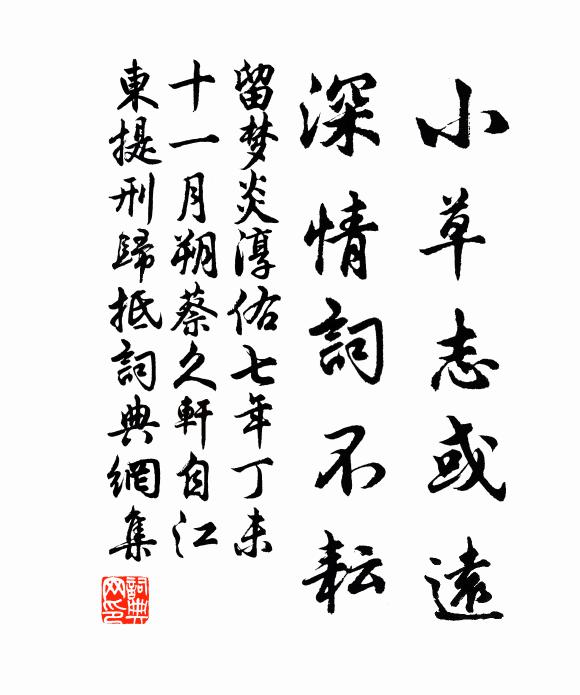 小草志或遠
深情詞不耘
留梦炎淳佑七年丁未
十一月朔蔡久軒自江
東提刑歸抵詞典網集
詞典
网印